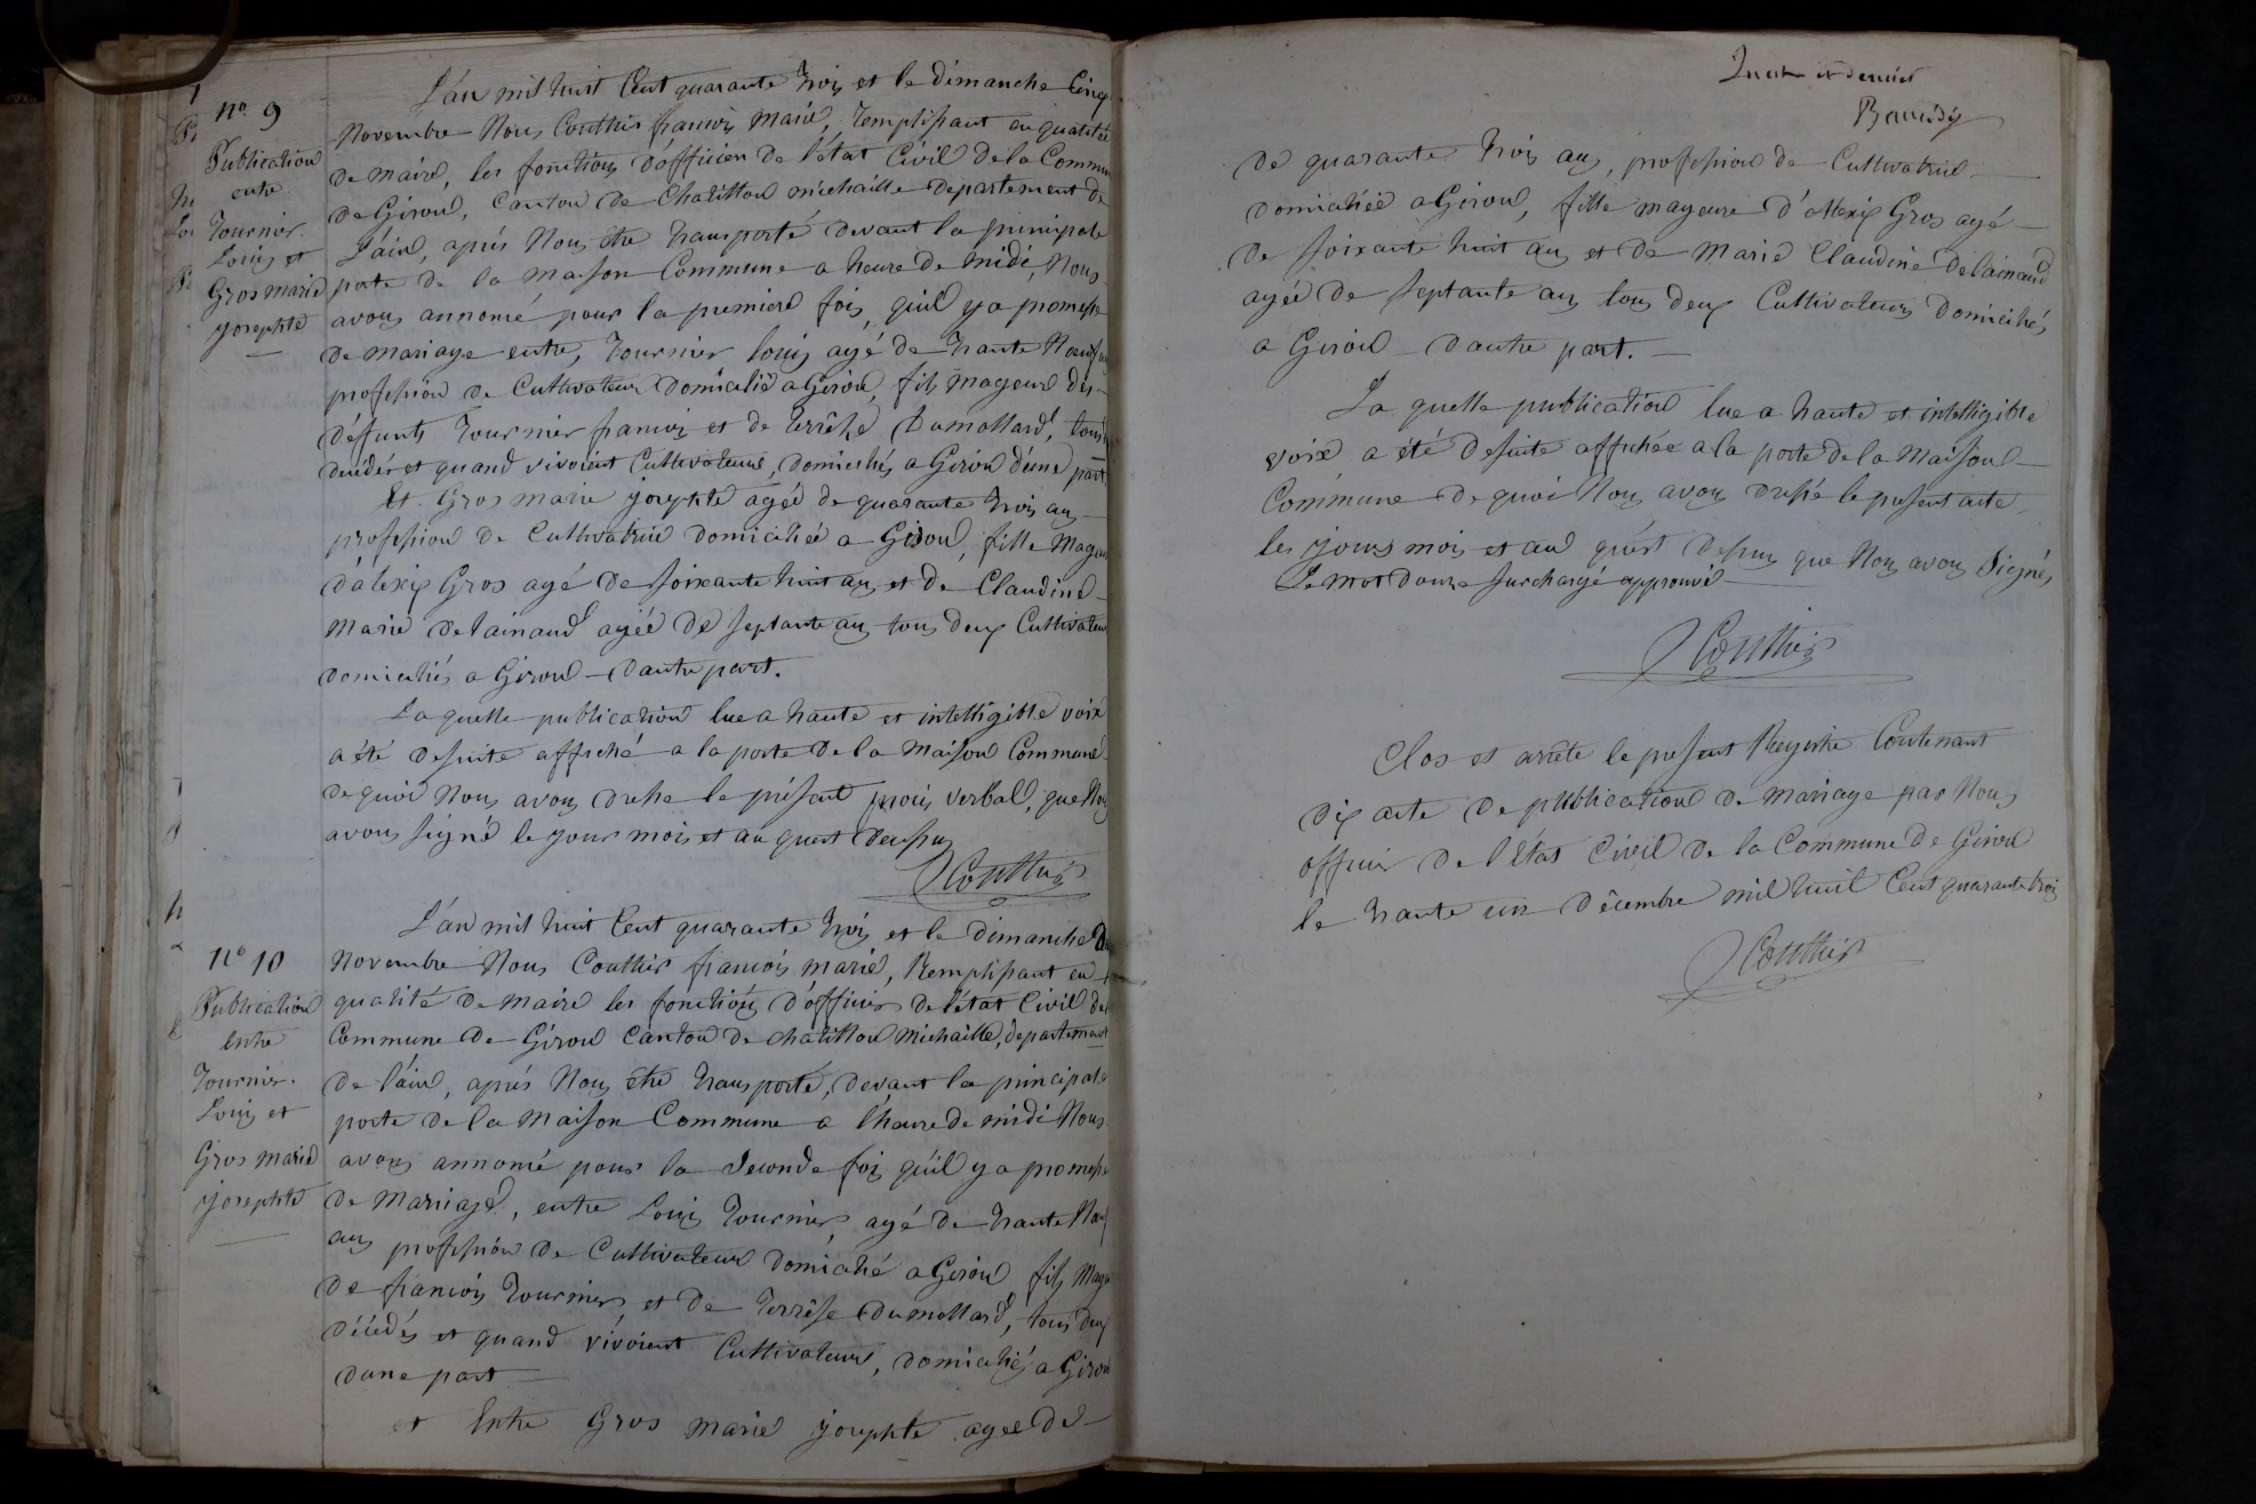 nº 9
Publication
entre
Tournier
Louis et
Gros marie
josephte
L'an mil huit Cent quarante trois et le dimanche Cinq
Novembre Nous Couthier françois marie, Remplissant en qualité
de maire, les fonctions d'officier de l'état Civil de la Commune
de Giron, Canton de Chatillon michaille departement de
L'ain, aprés Nous être transporté devant la principale
porte de la maison Commune a heure de midi, Nous
avons annoncé pour la premiere fois, quil y a promesse
de mariage entre, Tournier louis agé de trante Neuf ans
profession de Cultivateur Domicilié a Giron, fils mageur des
défunts Tournier françois et de Terrèse Dumollard, tous
décédés et quand vivoient Cultivateurs, domiciliés a Giron d'une part.
Et Gros marie josephte agée de quarante trois ans
profession de Cultivatrice domiciliée a Giron, fille Mageure
d'alexis Gros agé de soixante huit ans et de Claudine
marie Delainaud agée de septante ans tous deux Cultivateurs
domiciliés a Giron - dautre part.
La quelle publication lue a haute et intelligible voix
a été desuite affiché a la porte de la Maison Commune
de quoi Nous avons dressé le présent procés verbal, que Nous
avons signé le jour mois et an quest dessus
Couthier
nº 10
Publication
Entre
Tournier
Louis et
Gros marie
josephte
L'an mil huit Cent quarante trois et le dimanche
Novembre Nous Couthier françois marie, Remplissant en
qualité de maire les fonctions d'officier de l'état Civil de
Commune de Giron Canton de chatillon Michaille, departement
de l'ain, aprés Nous être transporté, devant la principale
porte de la Maison Commune a l'heure de midi Nous
avons annoncé pour la Seconde fois qu'il y a promesse
de Mariage, entre Louis Tournier, agé de trante Neuf
ans profession de Cultivateur Domicilié a Giron fils Mage
de françois Tournier, et de Terrèse Dumollard, tous deux
décédés et quand vivoient Cultivateurs, domiciliés a Giron
dune part
et Entre Gros marie josephte agée de
de quarante trois ans, profession de Cultivatrice
domiciliée a Giron, fille mageure d'Alexis Gros agé
de soixante huit ans et de Marie Claudine Delainaud
agée de septante ans tous deux Cultivateurs Domiciliés
a Giron - dautre part.
La quelle publication lue a haute et intelligible
voix a été desuite affichée a la porte de la Maison
Commune de quoi Nous avons dressé le present acte
les jours mois et an qu'est dessus que Nous avons Signés
Le mot douze surchargé approuvé
Couthier
Clos et arrêté le present Registre Contenant
dix acte de publication de mariage par Nous
officier de l'état Civil de la Commune de Giron
le trante un décembre mil huit Cent quarante trois
Couthier